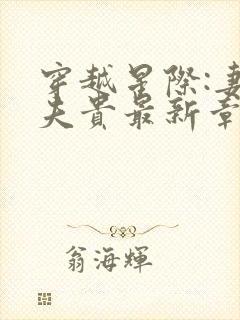 穿越星際:妻
夫貴最新章
翁海輝